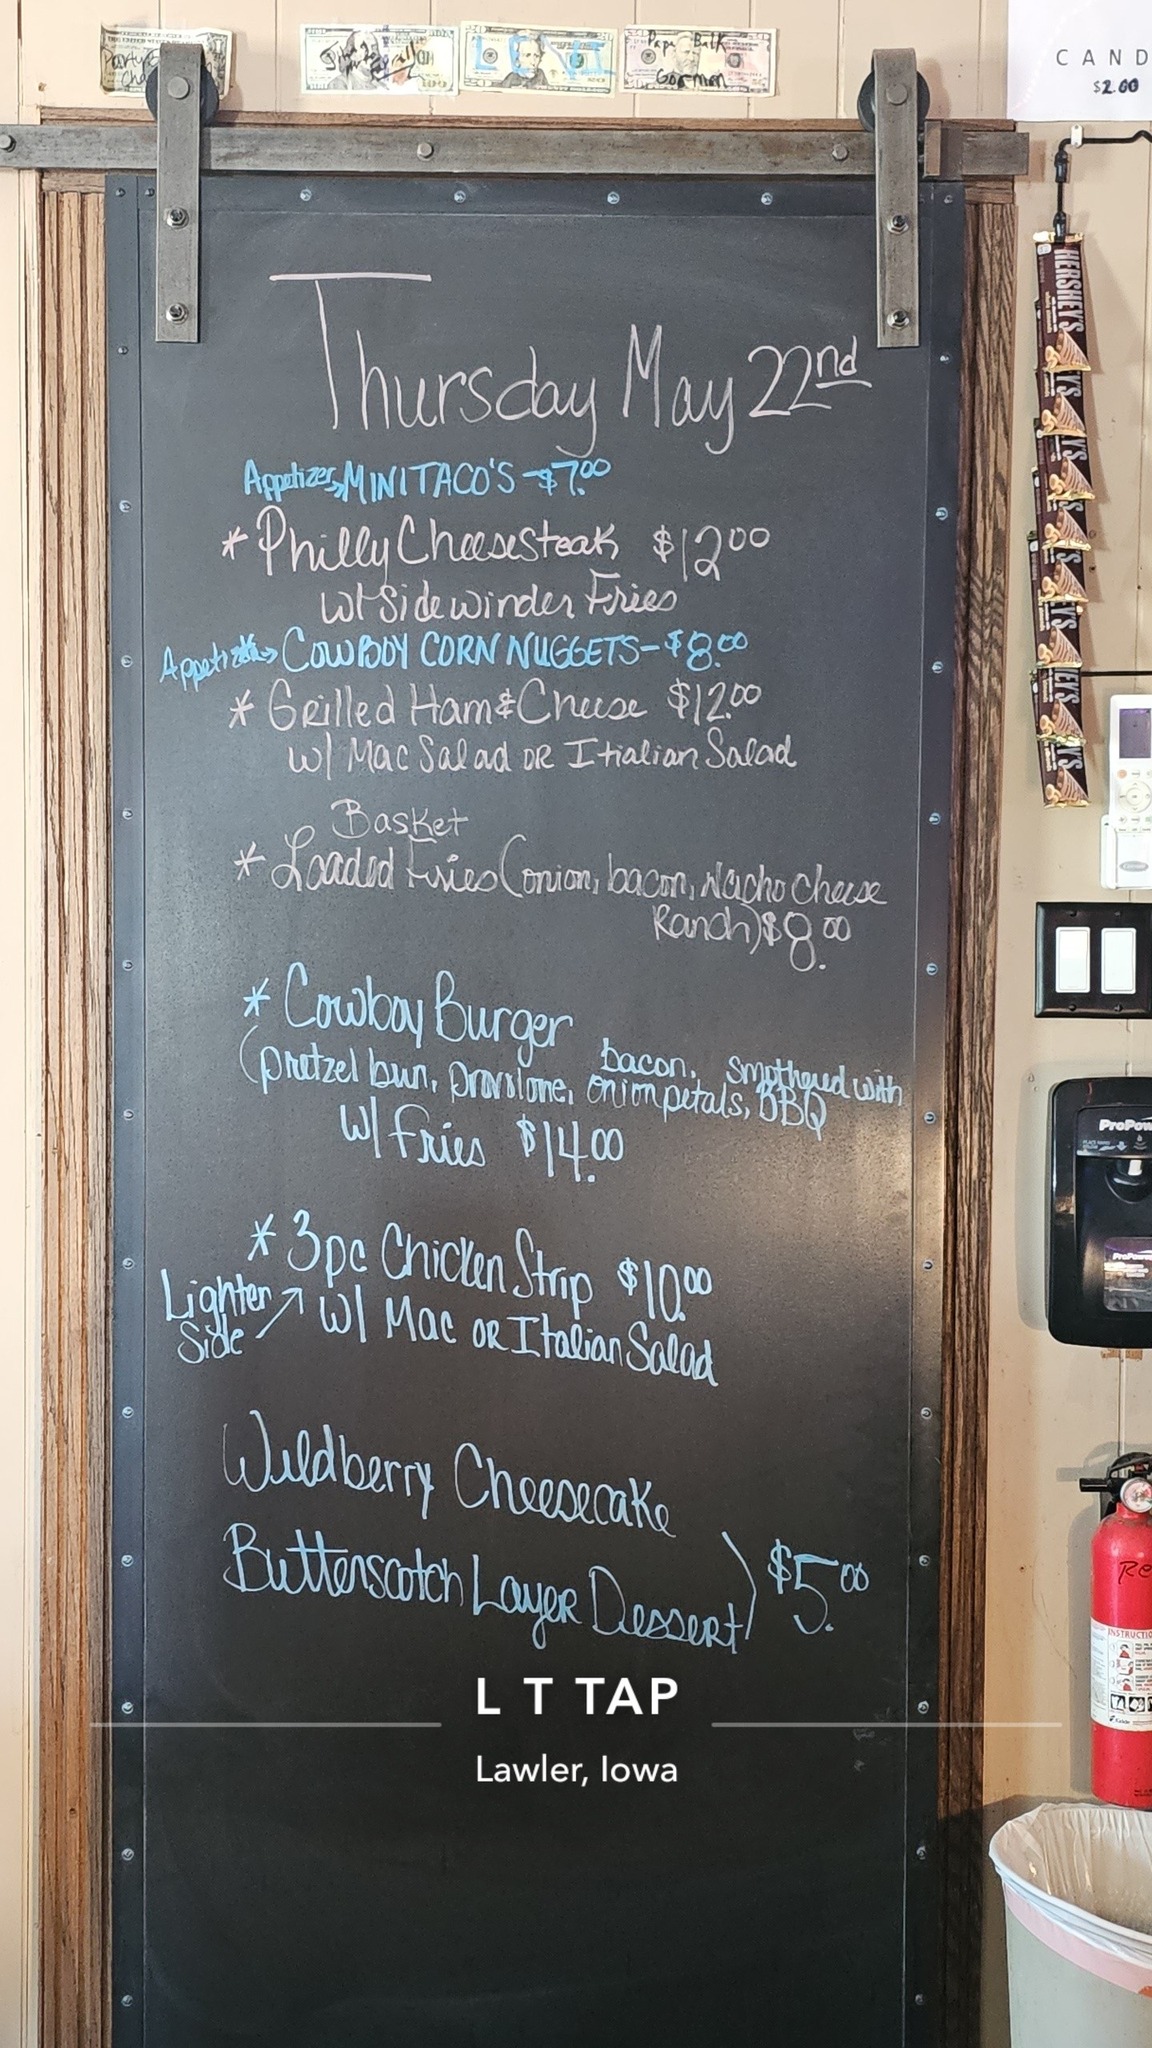 Papa Balk
Gorman
CAND
$2.00
HERSHEY'S
Thursday May 22nd
Appetizer MINI TACO'S - $7.00
* Philly Cheesesteak $12.00
w/ Sidewinder Fries
Appetizer COWBOY CORN NUGGETS - $8.00
* Grilled Ham & Cheese $12.00
w/ Mac Salad OR Itialian Salad
Basket
* Loaded Fries (onion, bacon, Nacho Cheese
Ranch) $8.00
* Cowboy Burger
(pretzel bun, provolone, bacon, onion petals, smothered with BBQ
w/ fries $14.00
* 3pc Chicken Strip $10.00
Lighter Side w/ Mac OR Italian Salad
Wildberry Cheesecake
Butterscotch Layer Dessert } $5.00
ProPow
ProPow
INSTRUCTIO
Kidde
L T TAP
Lawler, Iowa